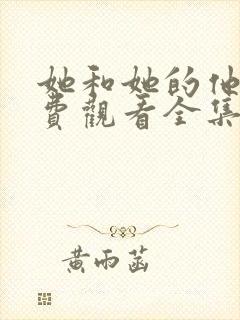 她和她的他
費觀看全集
黃雨菡